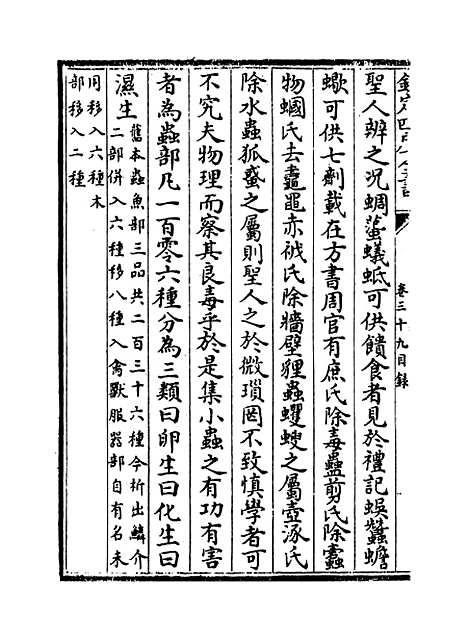 欽定四庫全書
卷三十九目錄
聖人辨之况蜩蠆蟻蚳可供饋食者見於禮記蜈蠶蟾
蠍可供匕劑載在方書周官有庶氏除毒蠱剪氏除蠹
物蟈氏去鼃黽赤犮氏除牆壁貍蟲蠼螋之屬壺涿氏
除水蟲狐蜮之屬則聖人之於微瑣罔不致慎學者可
不究夫物理而察其良毒乎於是集小蟲之有功有害
者為蟲部凡一百零六種分為三類曰卵生曰化生曰
濕生
舊本蟲魚部三品共二百三十六種今析出鱗介
二部併入六種移八種入禽獸服器部自有名未
用移入六種木
部移入二種